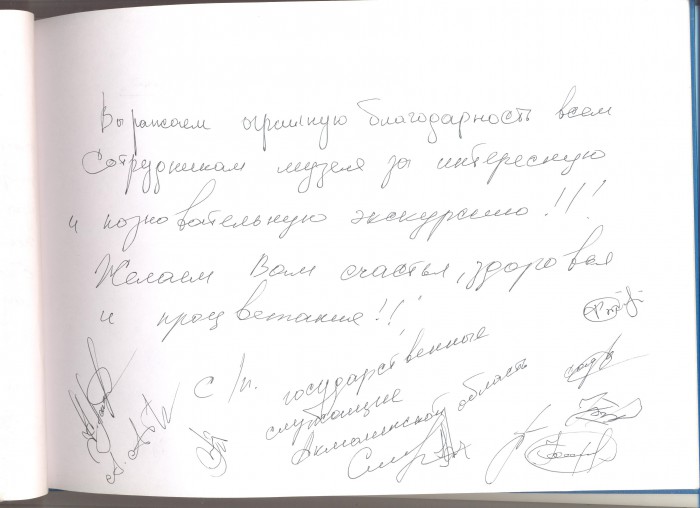 Выражаем огромную благодарность всем
Сотрудникам музея за интересную
и познавательную экскурсию!!!
Желаем Вам счастья, здоровья
и процветания!!!
С/п. государственные
служащие
Акмолинской область